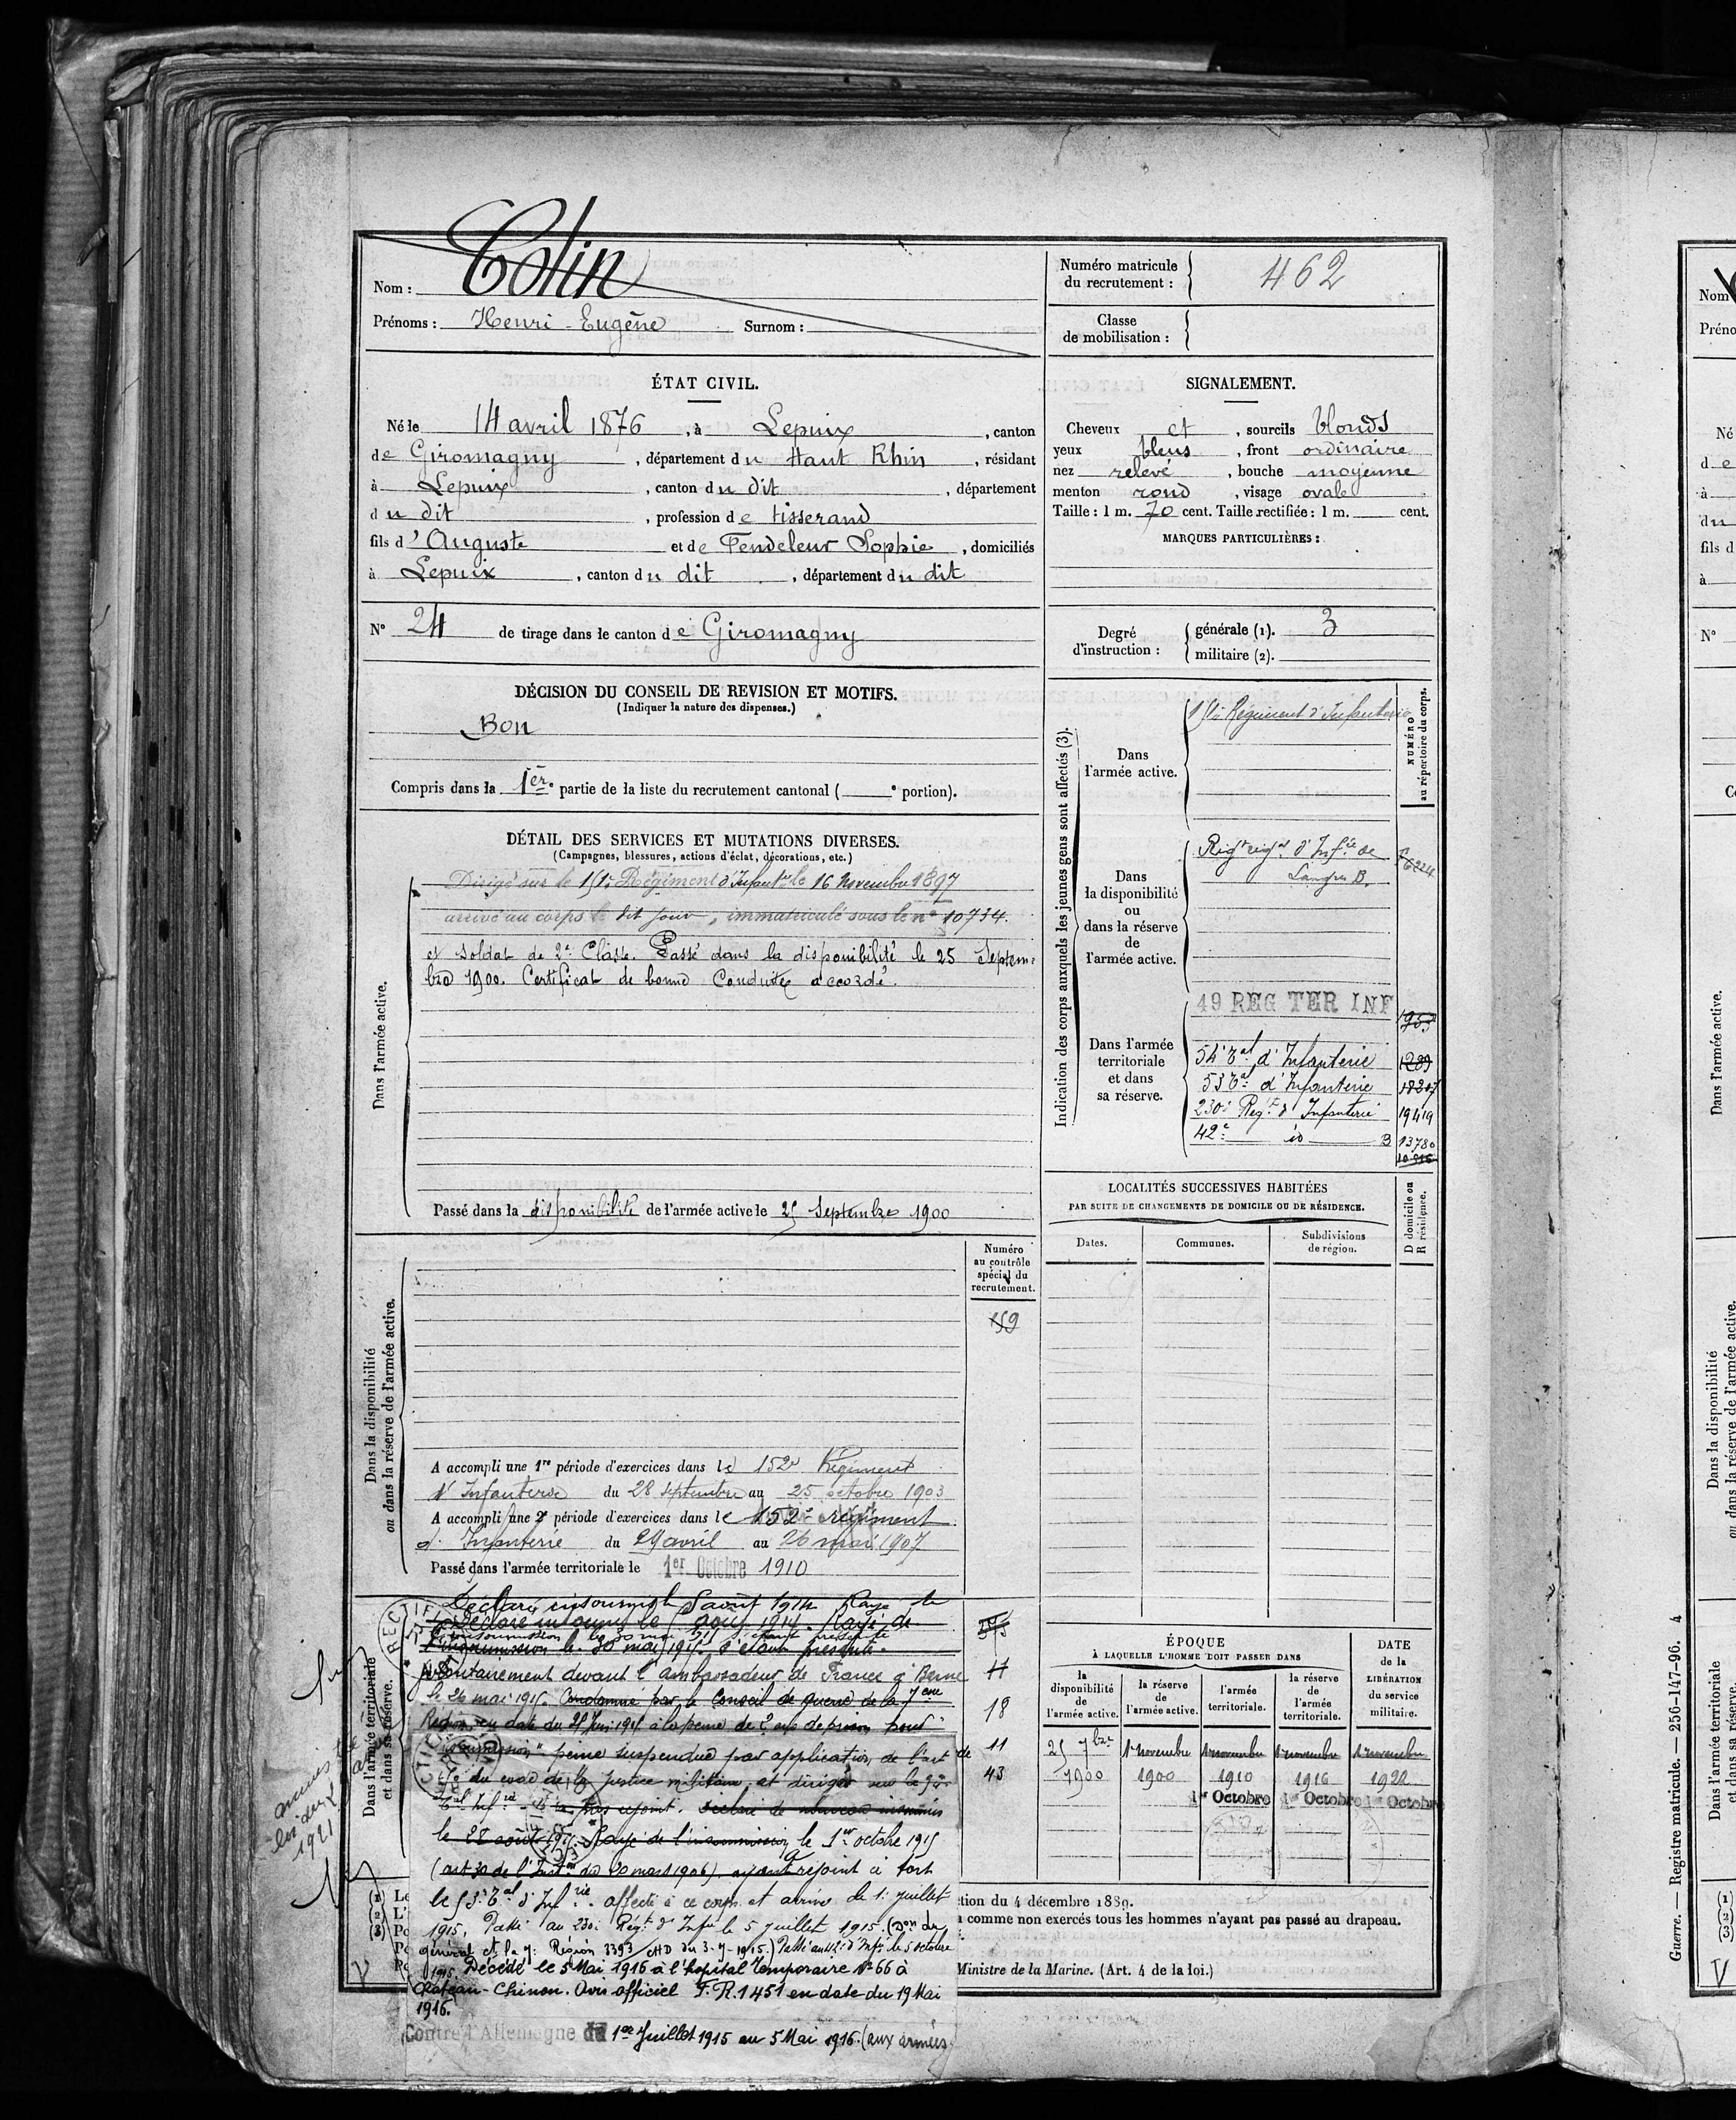 Nom : Colin
Prénoms : Henri-Eugène Surnom :
Numéro matricule du recrutement : 462
Classe de mobilisation :
ÉTAT CIVIL.
Né le 14 avril 1876, à Lepuix, canton
de Giromagny, département du Haut Rhin, résidant
à Lepuix, canton du dit, département
du dit, profession de tisserand
fils d'Auguste et de Fendeleur Sophie, domiciliés
à Lepuix, canton du dit, département du dit
SIGNALEMENT.
Cheveux et, sourcils blonds
yeux bleus, front ordinaire
nez relevé, bouche moyenne
menton rond, visage ovale
Taille : 1 m. 70 cent. Taille rectifiée : 1 m. cent.
MARQUES PARTICULIÈRES :
N° 24 de tirage dans le canton de Giromagny
Degré d'instruction : générale (1). 3
militaire (2).
DÉCISION DU CONSEIL DE REVISION ET MOTIFS.
(Indiquer la nature des dispenses.)
Bon
Compris dans la 1ère partie de la liste du recrutement cantonal ( e portion).
DÉTAIL DES SERVICES ET MUTATIONS DIVERSES.
(Campagnes, blessures, actions d'éclat, décorations, etc.)
Dans l'armée active.
Dirigé sur le 151e Régiment d'Infantie le 16 Novembre 1897
arrivé au corps le dit jour, immatriculé sous le n° 10734.
et soldat de 2e Classe. Passé dans la disponibilité le 25 Septem-
bre 1900. Certificat de bonne Conduite accordé.
Passé dans la disponibilité de l'armée active le 25 Septembre 1900
Indication des corps auxquels les jeunes gens sont affectés (3).
NUMÉRO au répertoire du corps.
Dans l'armée active.
151e Régiment d'Infanterie
Dans la disponibilité ou dans la réserve de l'armée active.
Régt régal d'Infie de
Langres B.
Dans l'armée territoriale et dans sa réserve.
49 REG TER INF
54e Bal d'Infanterie 1289
53e Bal d'Infanterie 18207
230e Régt d'Infanterie 19419
42e id B 13780
LOCALITÉS SUCCESSIVES HABITÉES
PAR SUITE DE CHANGEMENTS DE DOMICILE OU DE RÉSIDENCE.
Dates. Communes. Subdivisions de région. D domicile ou R résidence.
Dans la disponibilité ou dans la réserve de l'armée active.
Numéro au contrôle spécial du recrutement.
159
A accompli une 1re période d'exercices dans le 152e Régiment
d'Infanterie du 28 septembre au 25 octobre 1903
A accompli une 2e période d'exercices dans le 152e régiment
d'Infanterie du 29 avril au 26 mai 1907
Passé dans l'armée territoriale le 1er Octobre 1910
Dans l'armée territoriale et dans sa réserve.
Déclaré insoumis le 5 août 1914. Rayé de
l'insoumission le 30 mai 1915 s'étant présenté
volontairement devant l'ambassadeur de France à Berne
le 26 mai 1915. Condamné par le Conseil de guerre de la 7eme
Région, en date du 25 Juin 1915 à la peine de 2 ans de prison pour
"insoumission" peine suspendue par application de l'art de
du code de la Justice militaire, et dirigé sur le
N'a pas rejoint. Déclaré de nouveau insoumis
le 28 août 1915. Rayé de l'insoumission le 1er octobre 1915
(art 30 de l'Inston du 20 mars 1906) ayant rejoint à tort
le 53e Bal d'Infrie. affecté à ce corps et arrivé le 1er juillet
1915. Passé au 230e Régt d'Infie le 5 juillet 1915. (Don du
général ct la 7e Région 3393 du 3-7-1915.) Passé au 42e d'Infie le 5 octobre
1915. Décédé le 5 Mai 1916 à l'hôpital Temporaire N° 66 à
Chateau-Chinon. Avis officiel F.R. 1451 en date du 19 Mai
1916.
Contre l'Allemagne du 1er Juillet 1915 au 5 Mai 1916. (aux armées)
11
18
11
43
ÉPOQUE
À LAQUELLE L'HOMME DOIT PASSER DANS
la disponibilité de l'armée active. la réserve de l'armée active. l'armée territoriale. la réserve de l'armée territoriale.
DATE de la LIBÉRATION du service militaire.
25 7bre 1er novembre 1er novembre 1er novembre 1er novembre
1900 1900 1910 1916 1922
1er Octobre 1er Octobre 1er Octobre
tion du 4 décembre 1889.
comme non exercés tous les hommes n'ayant pas passé au drapeau.
Ministre de la Marine. (Art. 4 de la loi.)
Guerre. — Registre matricule. — 256-147-96. 4